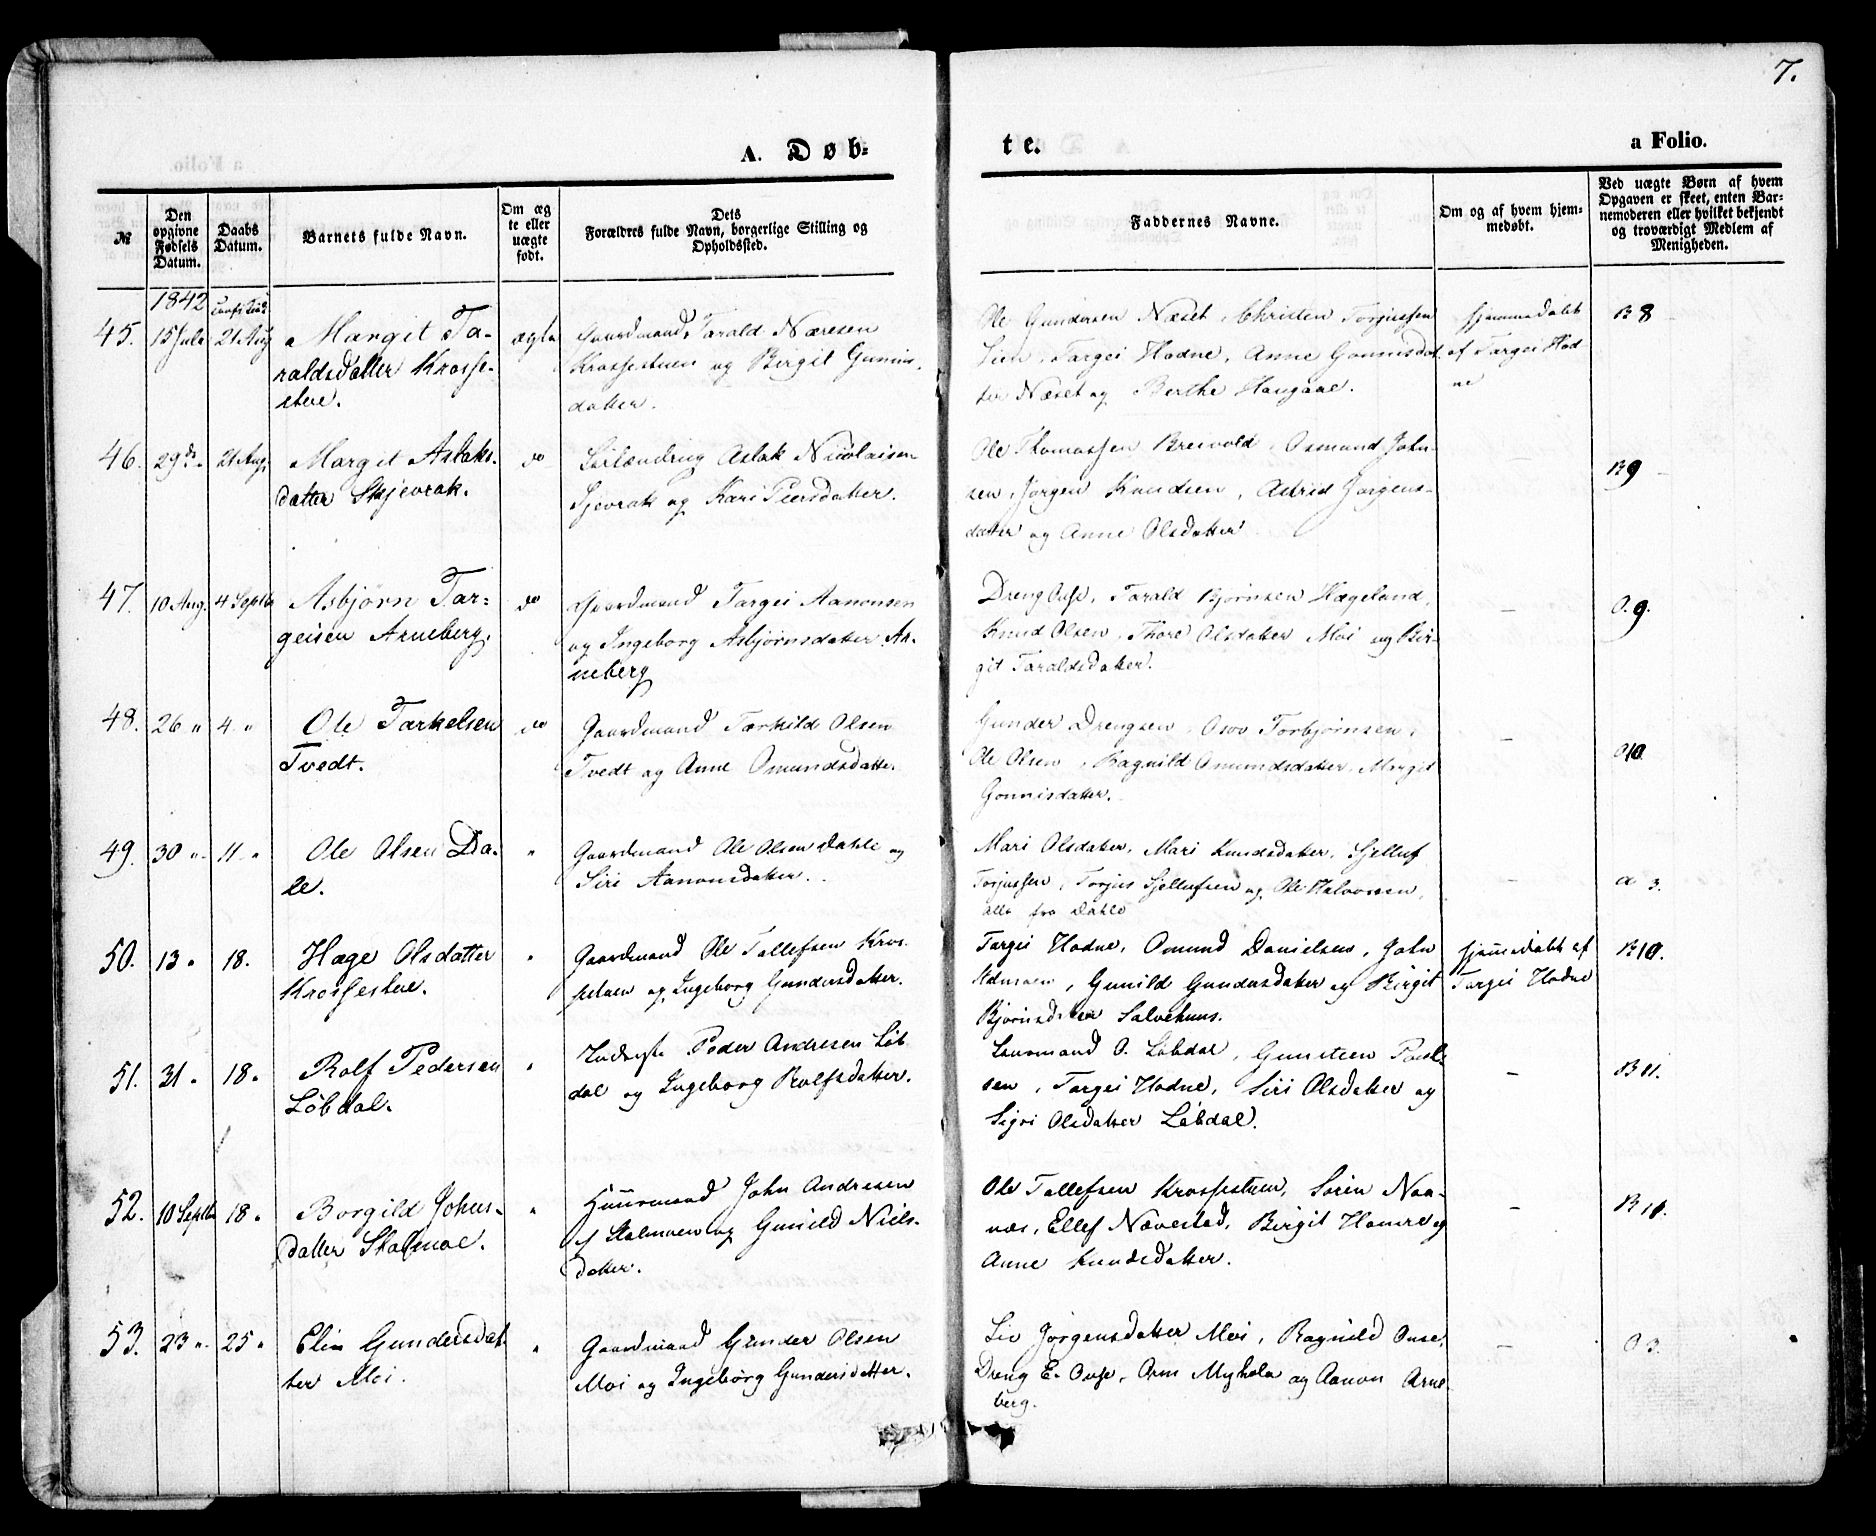 7.
A. Døb-
te.
a Folio.
№
Den opgivne Fødsels Datum.
Daabs Datum.
Barnets fulde Navn.
Om ægte eller uægte født.
Dets Forældres fulde Navn, borgerlige Stilling og Opholdssted.
Faddernes Navne.
Om og af hvem hjemmedøbt.
Ved uægte Børn af hvem Opgaven er skeet, enten Barnemoderen eller hvilket bekjendt og troværdigt Medlem af Menigheden.
1842
45. 15 Juli 21 Aug Margit Ta-
raldsdatter Krosse-
stue.
ægte
Gaardmand Tarald Næresen
Krossestuen og Birgit Gunnis-
datter.
Ole Gundersen Næset, Christen Torjussen
Lien, Targei Hodne, Anne Gonnisdat
ter Næset og Berthe Haugaae.
hjemmedøbt
af Targei Hod
ne
B 8
46. 29 do 21 Aug. Margit Aslaks-
datter Skjevrak.
do
Aslak Nicolaisen
Sjevrak og Kari Peersdatter.
Ole Thomassen Breivold, Osmund John-
sen, Jørgen Knudsen, Astrid Jørgens-
datter og Anne Olsdatter
B 9
47. 10 Aug. 4 Septbr Asbjørn Tar-
geisen Arneberg.
do
Gaardmand Targei Aanonsen
og Ingeborg Asbjørnsdatter Ar-
neberg
Dreng Ouse, Tarald Bjørnsen Hægeland,
Knud Olsen, Thore Olsdatter Moi og Bir-
git Taraldsdatter.
O. 9.
48. 26 " 4 " Ole Tarkelsen
Tvedt.
do
Gaardmand Tarkild Olsen
Tvedt og Anne Omundsdatter
Gunder Drengsen, Osov Torbjørnsen,
Ole Olsen, Ragnild Omundsdatter, Margit
Gonnisdatter.
O 10
49. 30 " 11 " Ole Olsen Da-
le.
"
Gaardmand Ole Olsen Dahle og
Siri Aanonsdatter.
Mari Olsdatter, Mari Knudsdatter, Sjelluf
Torjussen, Torjus Sjellufsen og Ole Halvorsen,
alle fra Dahle
a 3.
50. 13 " 18. Hæge Olsdatter
Krossestue.
"
Gaardmand Ole Tallefsen Kros-
stuen og Ingeborg Gundersdatter.
Targei Hodne, Omund Danielsen, John
, Gunild Gundersdatter og Birgit
Bjørnsdatter Salvehuus.
hjemmedøbt af
Targei Hodne
B 10.
51. 31 " 18 " Rolf Pedersen
Løbdal.
"
Peder Andresen Løb
dal og Ingeborg Rolfsdatter.
O. Løbdal, Gunsteen Poul-
sen, Targei Hodne, Siri Olsdatter og
Sigri Olsdatter Løbdal.
B 11.
52. 10 Septbr 18 " Borgild Johns-
datter Skalmoe.
"
Huusmand John Andresen
Skalmoen og Gunild Niels-
datter.
Ole Tallefsen Krossestuen, Søren Naa-
næs, Ellef Navestad, Birgit Homre og
Anne Knudsdatter.
B 10.
53. 23 " 25 " Elin Gundersdat
ter Moi.
"
Gaardmand Gunder Olsen
Moi og Ingebørg Gundersdatter.
Liv Jørgensdatter Moi, Ragnild Ouse,
Dreng E. Ouse, Myhola og Aanon Arne-
berg.
O 3.